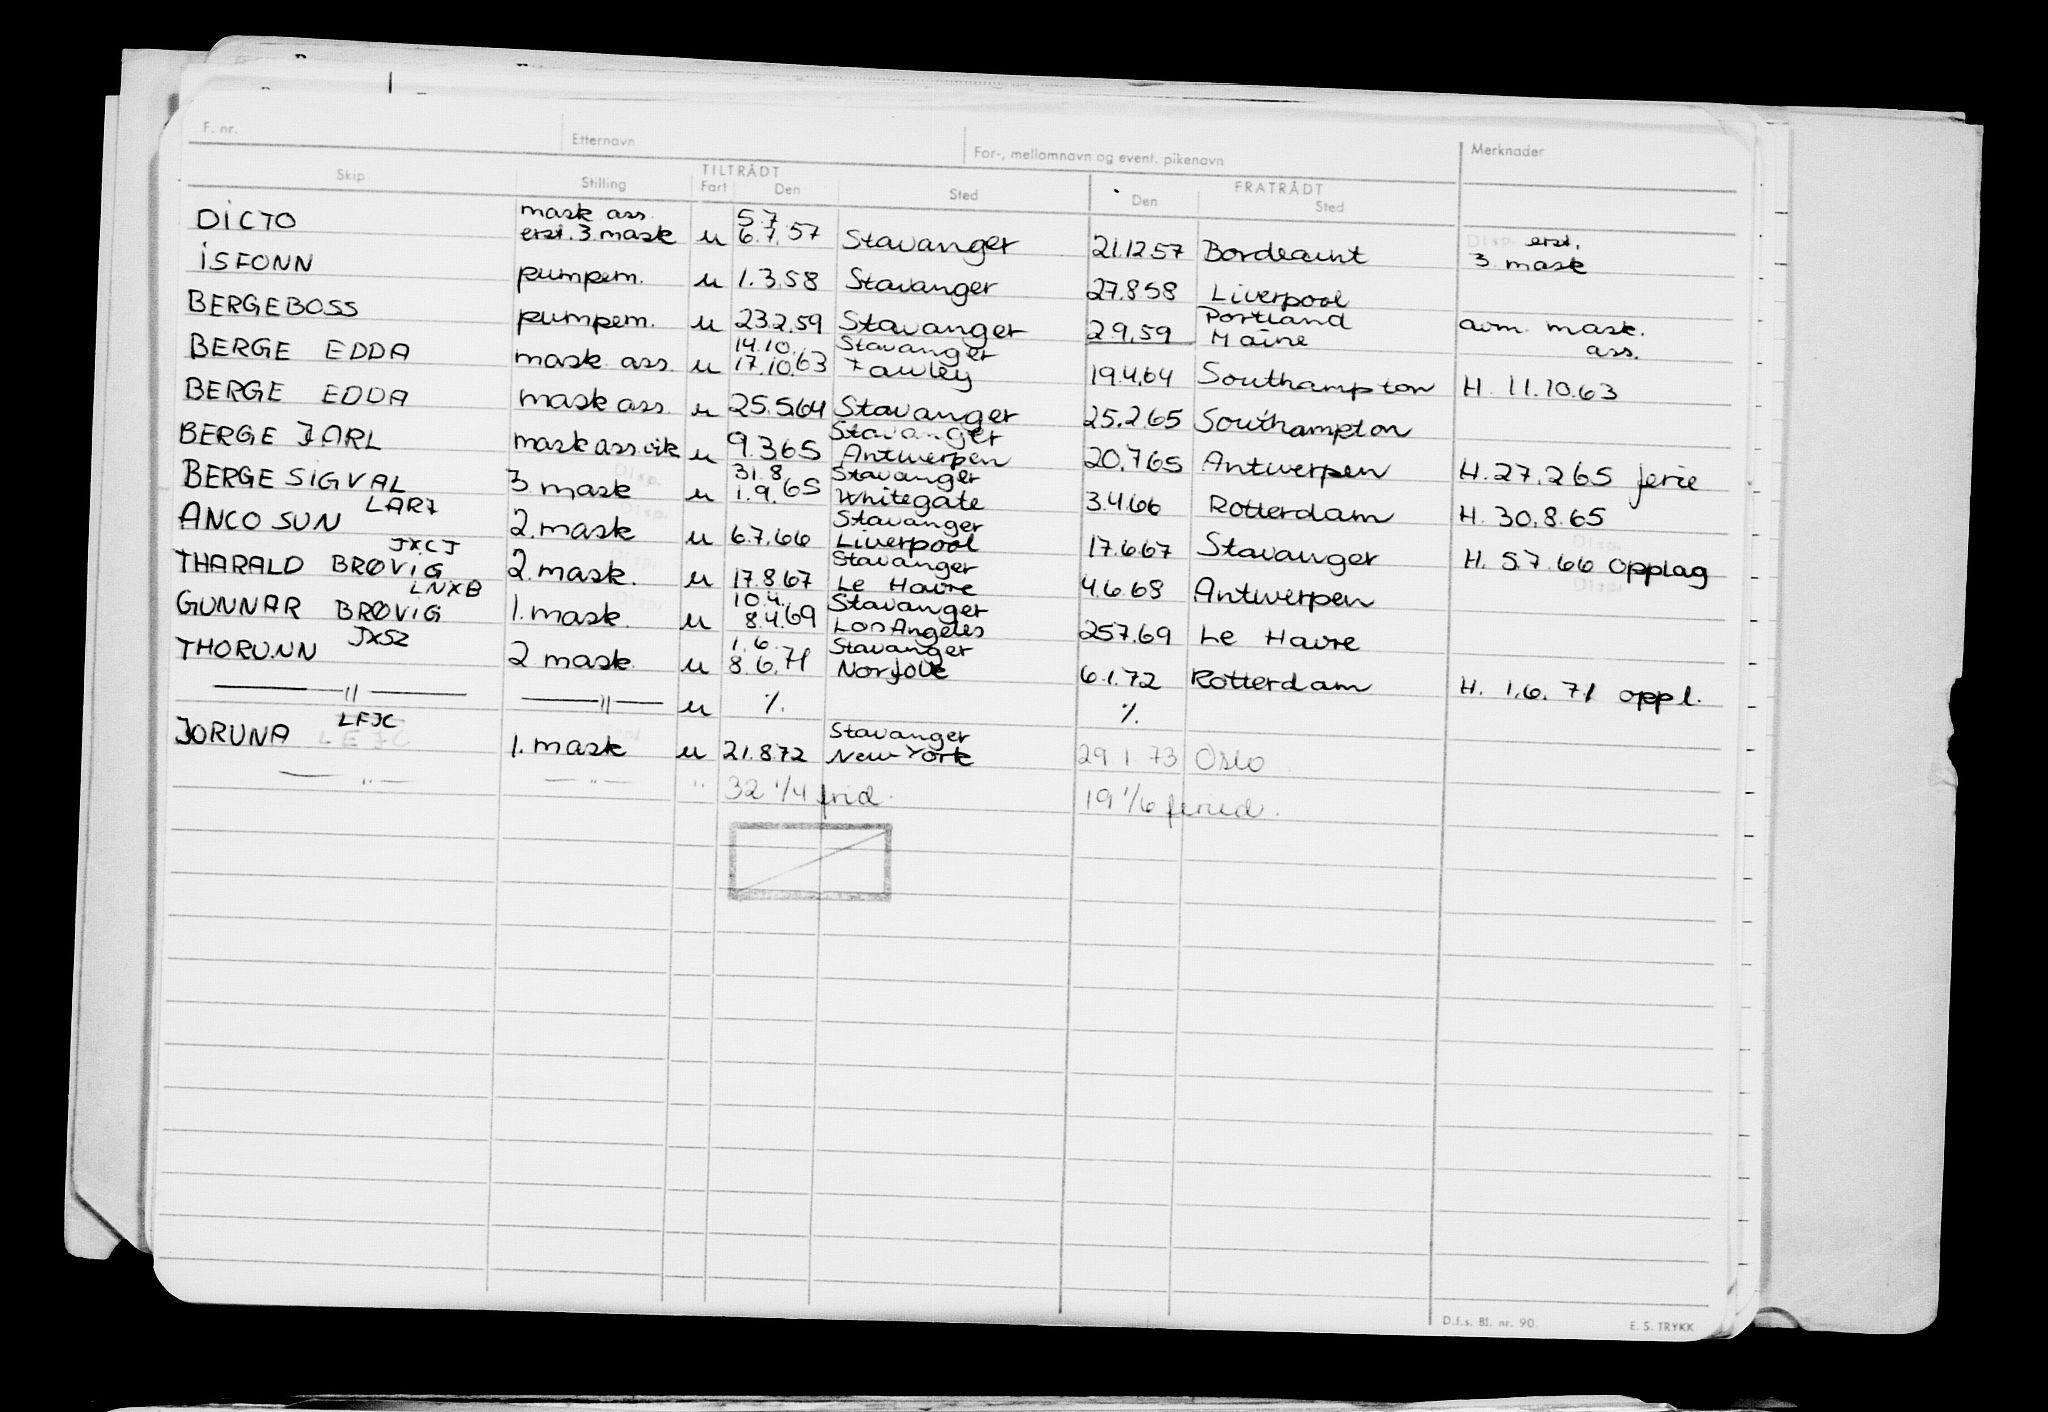 F. nr. Etternavn For-, mellomnavn og event. pikenavn Merknader
Skip Stilling TILTRÅDT Fart Den Sted FRATRÅDT Den Sted
DICTO mask ass. erst. 3. mask u 5.7 6.7.57 Stavanger 21.12.57 Bordeaux Disp. erst. 3 mask
ISFONN pumpem. u 1.3.58 Stavanger 27.8.58 Liverpool
BERGEBOSS pumpem. u 23.2.59 Stavanger 2.9.59 Portland Maine avm. mask. ass.
BERGE EDDA mask. ass. u 14.10. 17.10.63 Stavanger Fawley 19.4.64 Southampton H. 11.10.63
BERGE EDDA mask ass. u 25.5.64 Stavanger 25.2.65 Southampton
BERGE JARL mask ass. vik u 9.3.65 Stavanger Antwerpen 20.7.65 Antwerpen H. 27.2.65 ferie
BERGE SIGVAL 3. mask Disp. u 31.8 1.9.65 Stavanger Whitegate 3.4.66 Rotterdam H. 30.8.65
ANCO SUN LAR7 2. mask Disp. u 6.7.66 Stavanger Liverpool 17.6.67 Stavanger H. 5.7.66 opplag Disp.
THARALD BRØVIG JXCJ 2. mask. Disp. u 17.8.67 Stavanger Le Havre 4.6.68 Antwerpen Disp.
GUNNAR BRØVIG LNXB 1. mask. Disp. u 10.4. 8.4.69 Stavanger Los Angeles 25.7.69 Le Havre
THORUNN JXSZ 2 mask. u 1.6. 8.6.71 Stavanger Norfolk 6.1.72 Rotterdam H. 1.6.71 oppl.
—"— —"— u ٪ ٪
JORUNA LFJC LEJC 1. mask u 21.8.72 Stavanger New York 29 1 73 Oslo
—"— —"— " 32 1/4 frid. 19 1/6 feried.
D.f.s. Bl. nr. 90. E. S. TRYKK